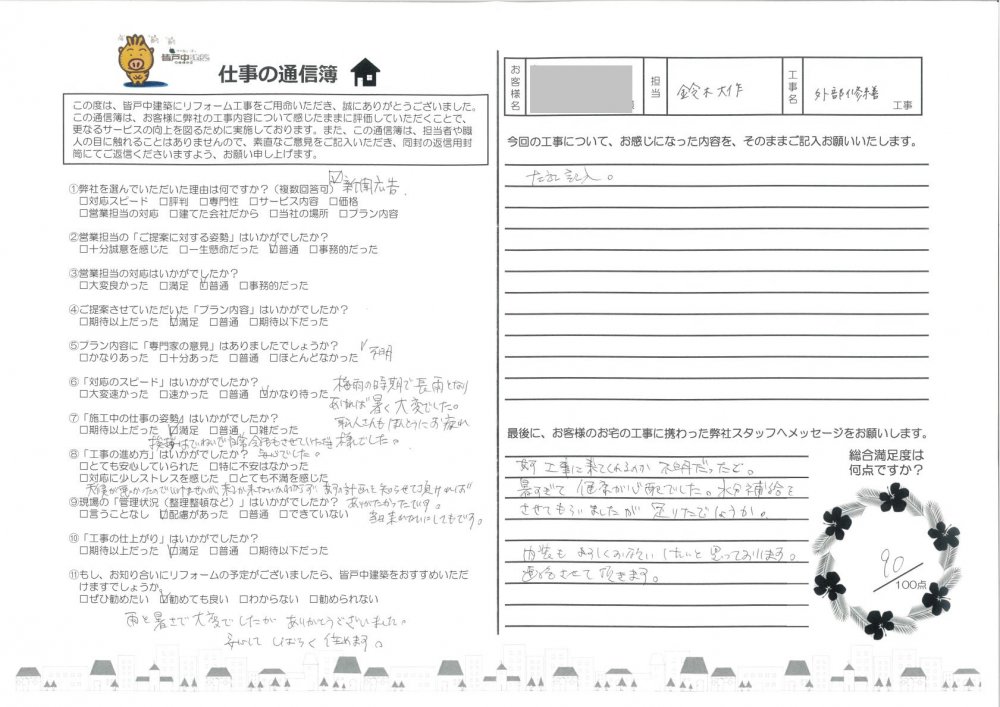 皆戸中建築
仕事の通信簿
この度は、皆戸中建築にリフォーム工事をご用命いただき、誠にありがとうございました。
この通信簿は、お客様に弊社の工事内容について感じたままに評価していただくことで、
更なるサービスの向上を図るために実施しております。また、この通信簿は、担当者や職
人の目に触れることはありませんので、素直なご意見をご記入いただき、同封の返信用封
筒にてご返信くださいますよう、お願い申し上げます。
①弊社を選んでいただいた理由は何ですか?(複数回答可) ☑新聞広告.
□対応スピード □評判 □専門性 □サービス内容 □価格
□営業担当の対応 □建てた会社だから □当社の場所 □プラン内容
②営業担当の「ご提案に対する姿勢」はいかがでしたか?
□十分誠意を感じた □一生懸命だった ☑普通 □事務的だった
③営業担当の対応はいかがでしたか?
□大変良かった □満足 ☑普通 □事務的だった
④ご提案させていただいた「プラン内容」はいかがでしたか?
□期待以上だった ☑満足 □普通 □期待以下だった
⑤プラン内容に「専門家の意見」はありましたでしょうか? ✓不明
□かなりあった □十分あった □普通 □ほとんどなかった
⑥「対応のスピード」はいかがでしたか?
□大変速かった □速かった □普通 ☑かなり待った
梅雨の時期で長雨となり
あければ暑く大変でした。
職人さんもほんとうにお疲れ
様でした。
⑦「施工中の仕事の姿勢」はいかがでしたか?
□期待以上だった ☑満足 □普通 □雑だった
挨拶はていねいで
安心でした。
⑧「工事の進め方」はいかがでしたか?
□とても安心していられた □特に不安はなかった
□対応に少しストレスを感じた □とても不満を感じた
天候が悪かったので
ありがたかったです。
⑨現場の「管理状況(整理整頓など)」はいかがでしたか?
□言うことなし ☑配慮があった □普通 □できていない
⑩「工事の仕上がり」はいかがでしたか?
□期待以上だった ☑満足 □普通 □期待以下だった
⑪もし、お知り合いにリフォームの予定がございましたら、皆戸中建築をおすすめいただ
けますでしょうか。
□ぜひ勧めたい ☑勧めても良い □わからない □勧められない
雨と暑さで大変でしたが ありがとうございました。
安心して しばらく 住めます。
お客様名 様 担当 鈴木大作 工事名 外部修繕 工事
今回の工事について、お感じになった内容を、そのままご記入お願いいたします。
左に記入。
最後に、お客様のお宅の工事に携わった弊社スタッフへメッセージをお願いします。
工事に来てくれるのか 不明だったので。
暑すぎて 健康が心配でした。水分補給を
させてもらいましたが 足りたでしょうか。
内装も よろしくお願いしたいと思っております。
連絡させて頂きます。
総合満足度は
何点ですか?
90
100点